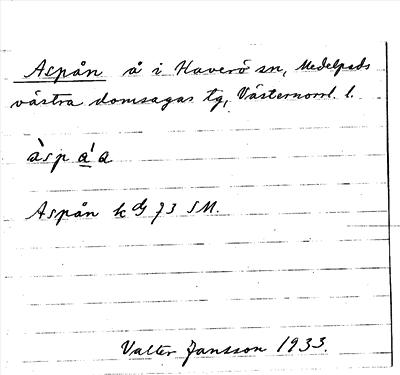 Aspån å i Haverö sn, Medelpads
västra domsagas tg, Västernorrl. l.
àsp a̲´a
Aspån k G 73 SM.
Valter Jansson 1933.